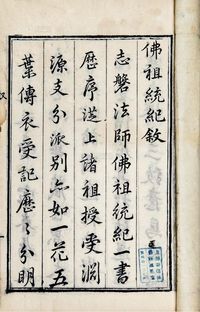 佛祖統紀敘
志磐法師佛祖統紀一書
歷序從上諸祖授受淵
源支分派別亦如一花五
葉傳衣受記歷歷分明